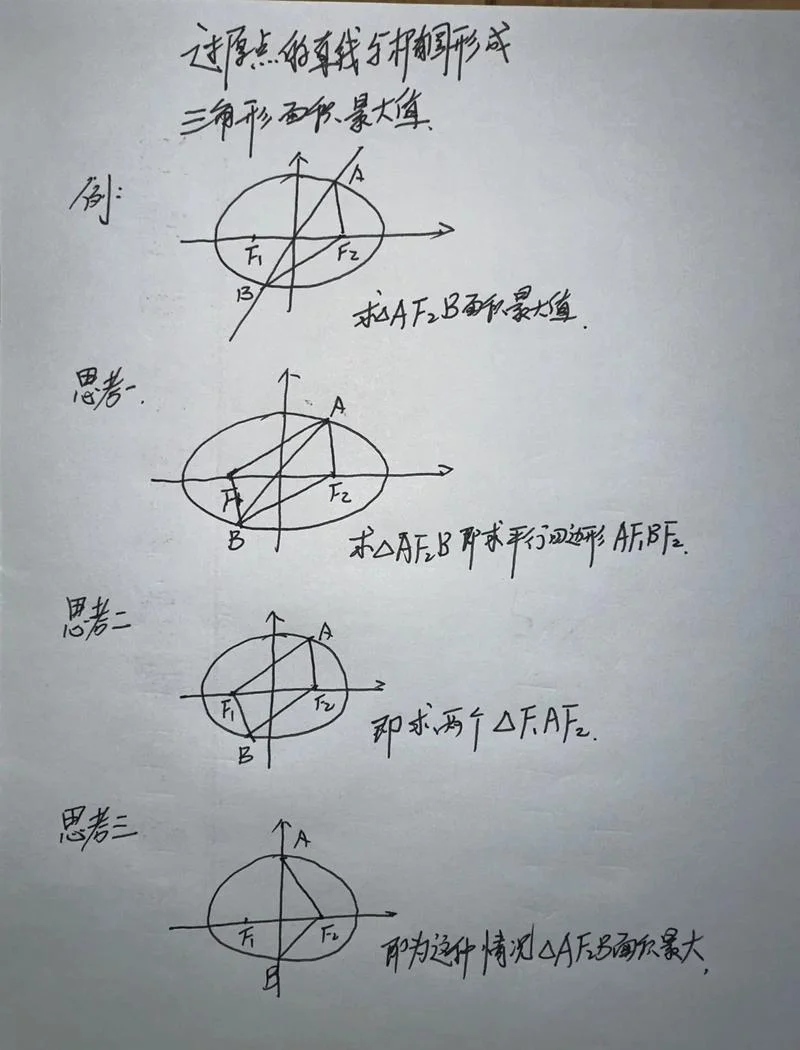 过原点的直线与椭圆形成
三角形面积最大值.
例:
A
F₁
F₂
B
求△AF₂B面积最大值.
思考一.
A
F₁
F₂
B
求△AF₂B即求平行四边形AF₁BF₂.
思考二
A
F₁
F₂
B
即求两个△F₁AF₂.
思考三
A
F₁
F₂
B
即为这种情况△AF₂B面积最大,